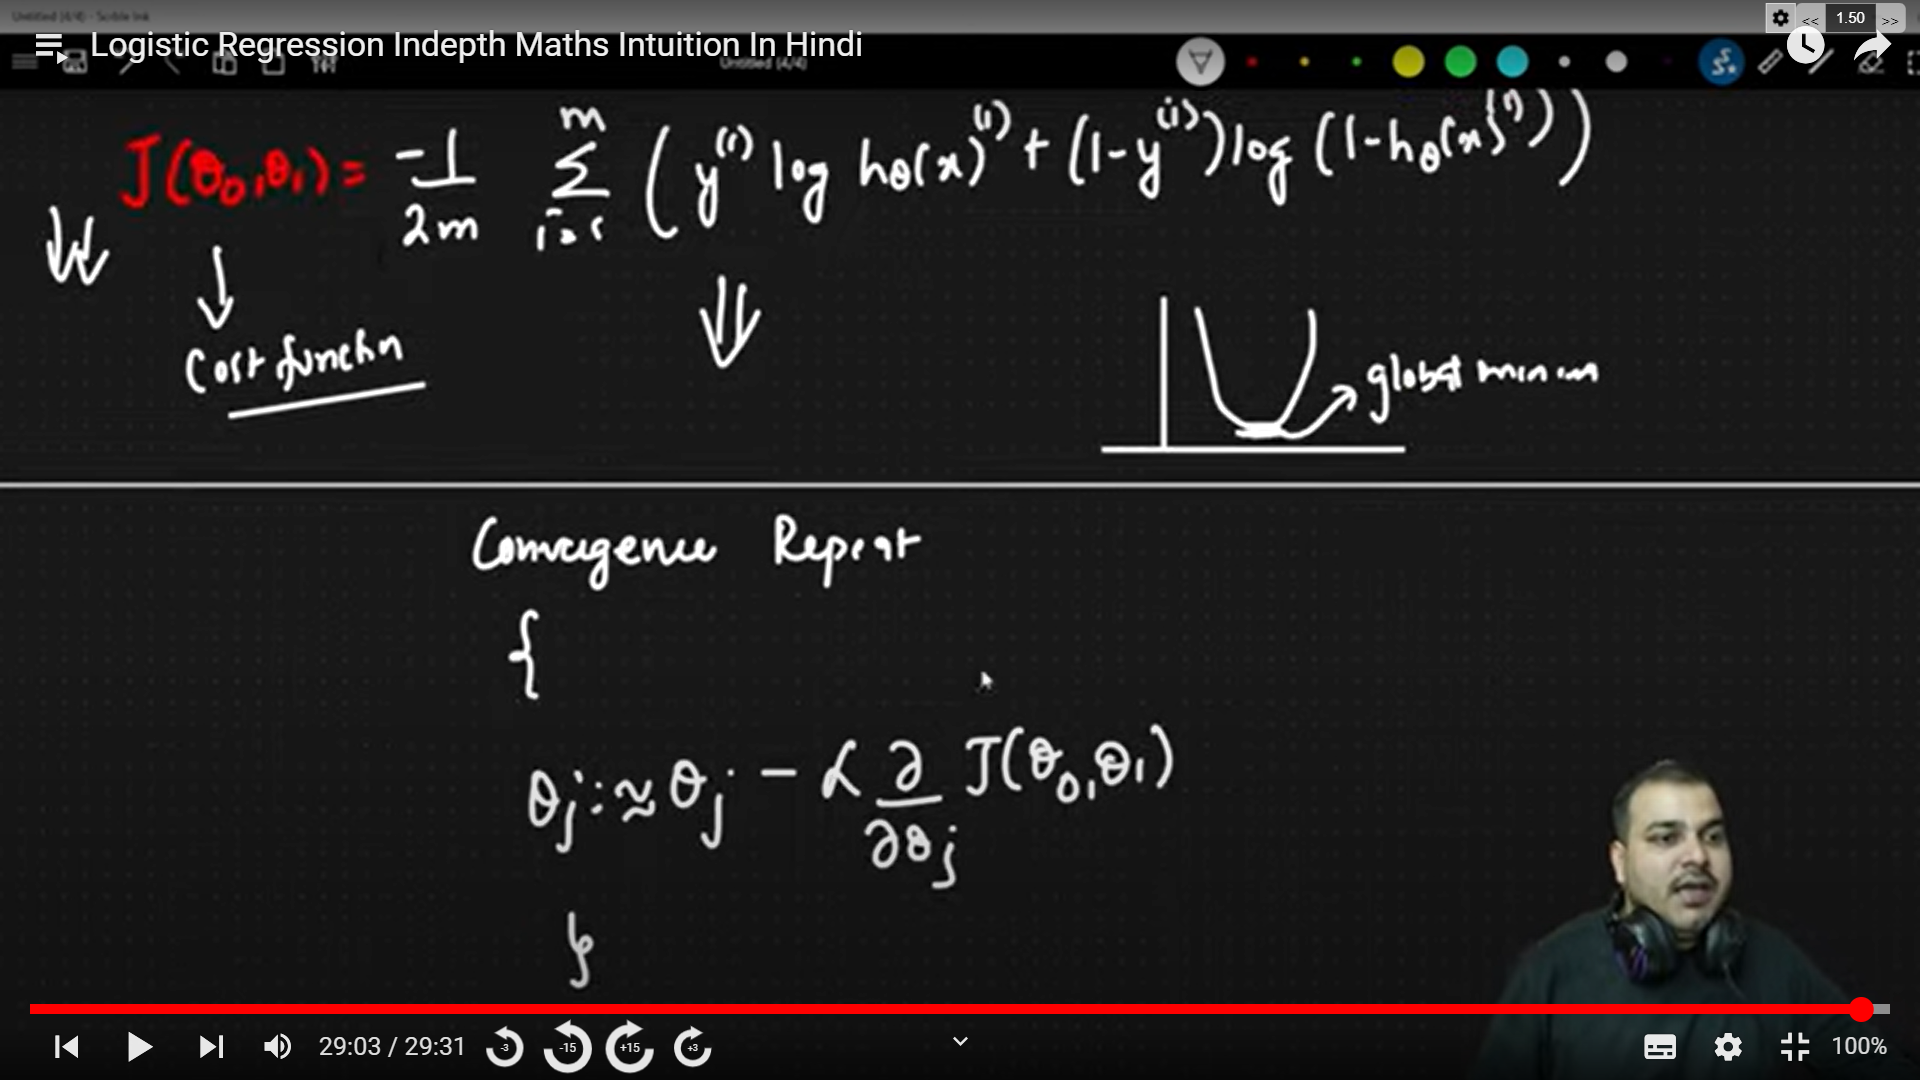 Untitled (4/4) - Scrble Ink
<< 1.50 >>
Logistic Regression Indepth Maths Intuition In Hindi
Untitled (4/4)
J(θ₀,θ₁) = -1/2m Σ_{i=1}^{m} ( y⁽ⁱ⁾ log hθ(x)⁽ⁱ⁾ + (1-y⁽ⁱ⁾) log (1-hθ(x)⁽ⁱ⁾))
Cost function
global minim
Convergence Repeat
{
θj :≈ θj - α ∂/∂θj J(θ₀,θ₁)
}
29:03 / 29:31
-3 -15 +15 +3
100%